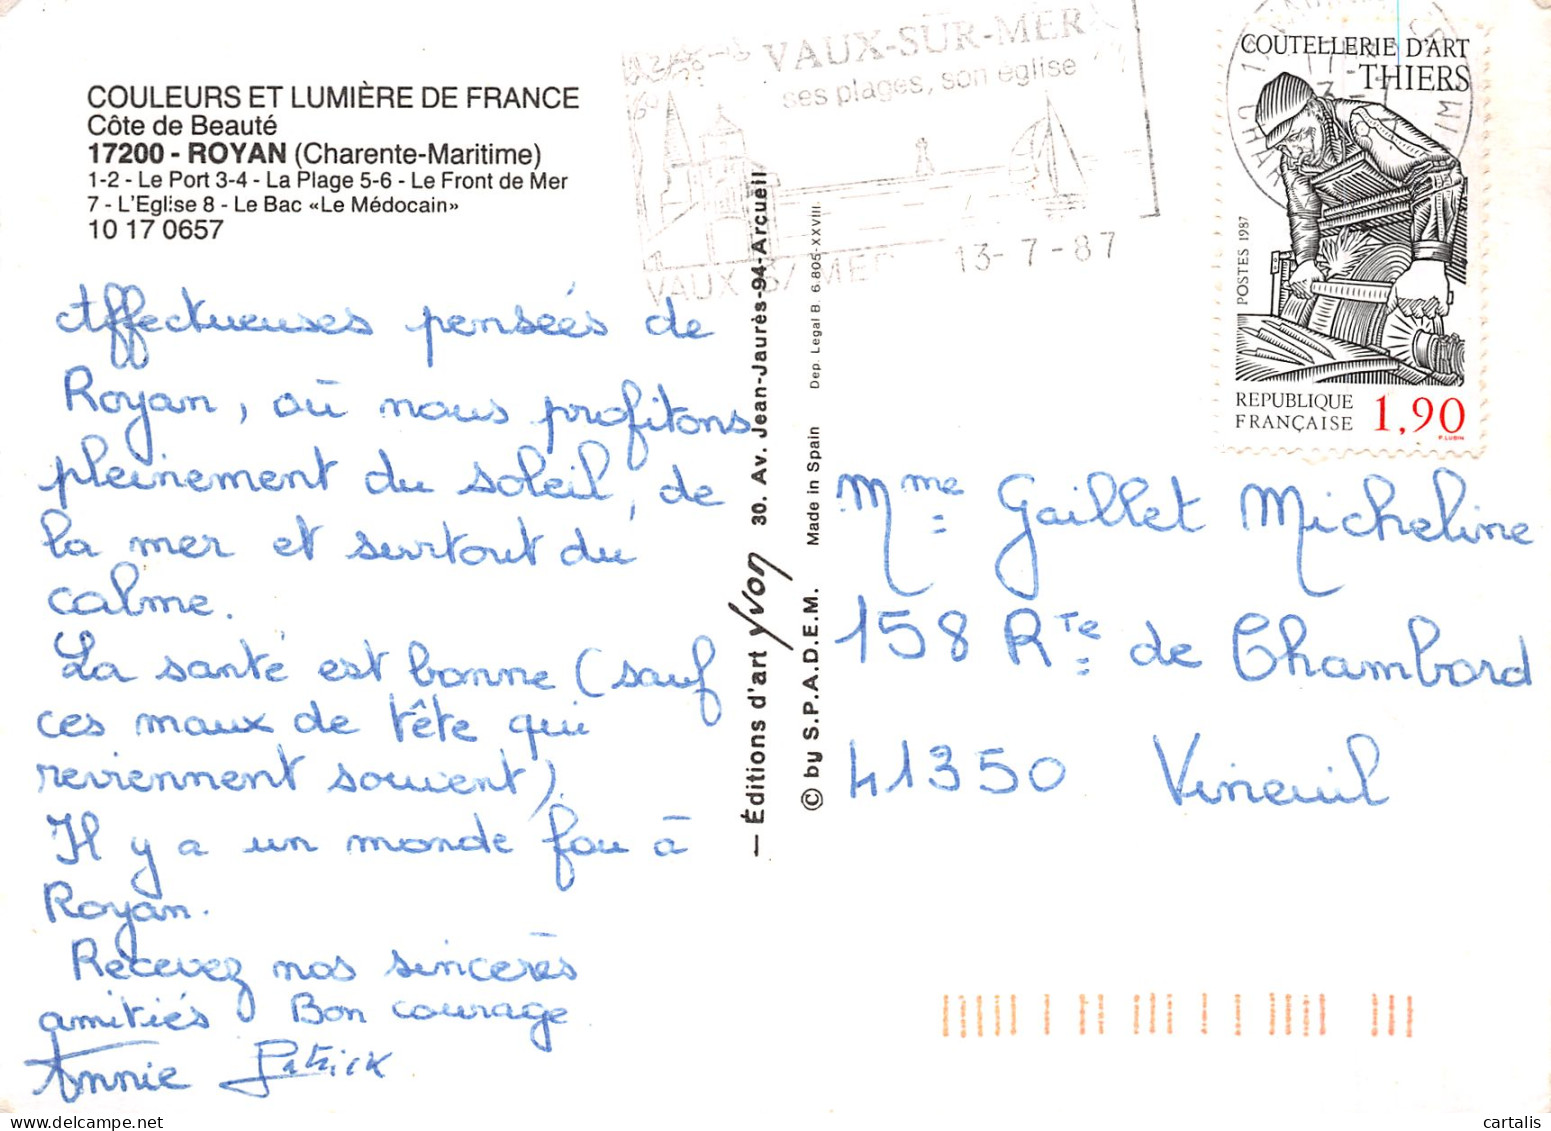 COULEURS ET LUMIÈRE DE FRANCE
Côte de Beauté
17200 - ROYAN (Charente-Maritime)
1-2 - Le Port 3-4 - La Plage 5-6 - Le Front de Mer
7 - L'Eglise 8 - Le Bac «Le Médocain»
10 17 0657
Affectueuses pensées de
Royan, où nous profitons
pleinement du soleil, de
la mer et surtout du
calme.
La santé est bonne (sauf
ces maux de tête qui
reviennent souvent).
Il y a un monde fou à
Royan.
Recevez nos sincères
amitiés Bon courage
Annie Patrick
— Éditions d'art Yvon 30. Av. Jean-Jaurès-94-Arcueil
© by S.P.A.D.E.M. Made in Spain Dep. Legal B. 6.805-XXVIII
VAUX-SUR-MER
ses plages, son église
VAUX S/ MER 13-7-87
COUTELLERIE D'ART
THIERS
POSTES 1987
REPUBLIQUE
FRANÇAISE 1,90
P. LUBIN
Mme Gaillet Micheline
158 Rte de Chambord
41350 Vineuil
cartalis